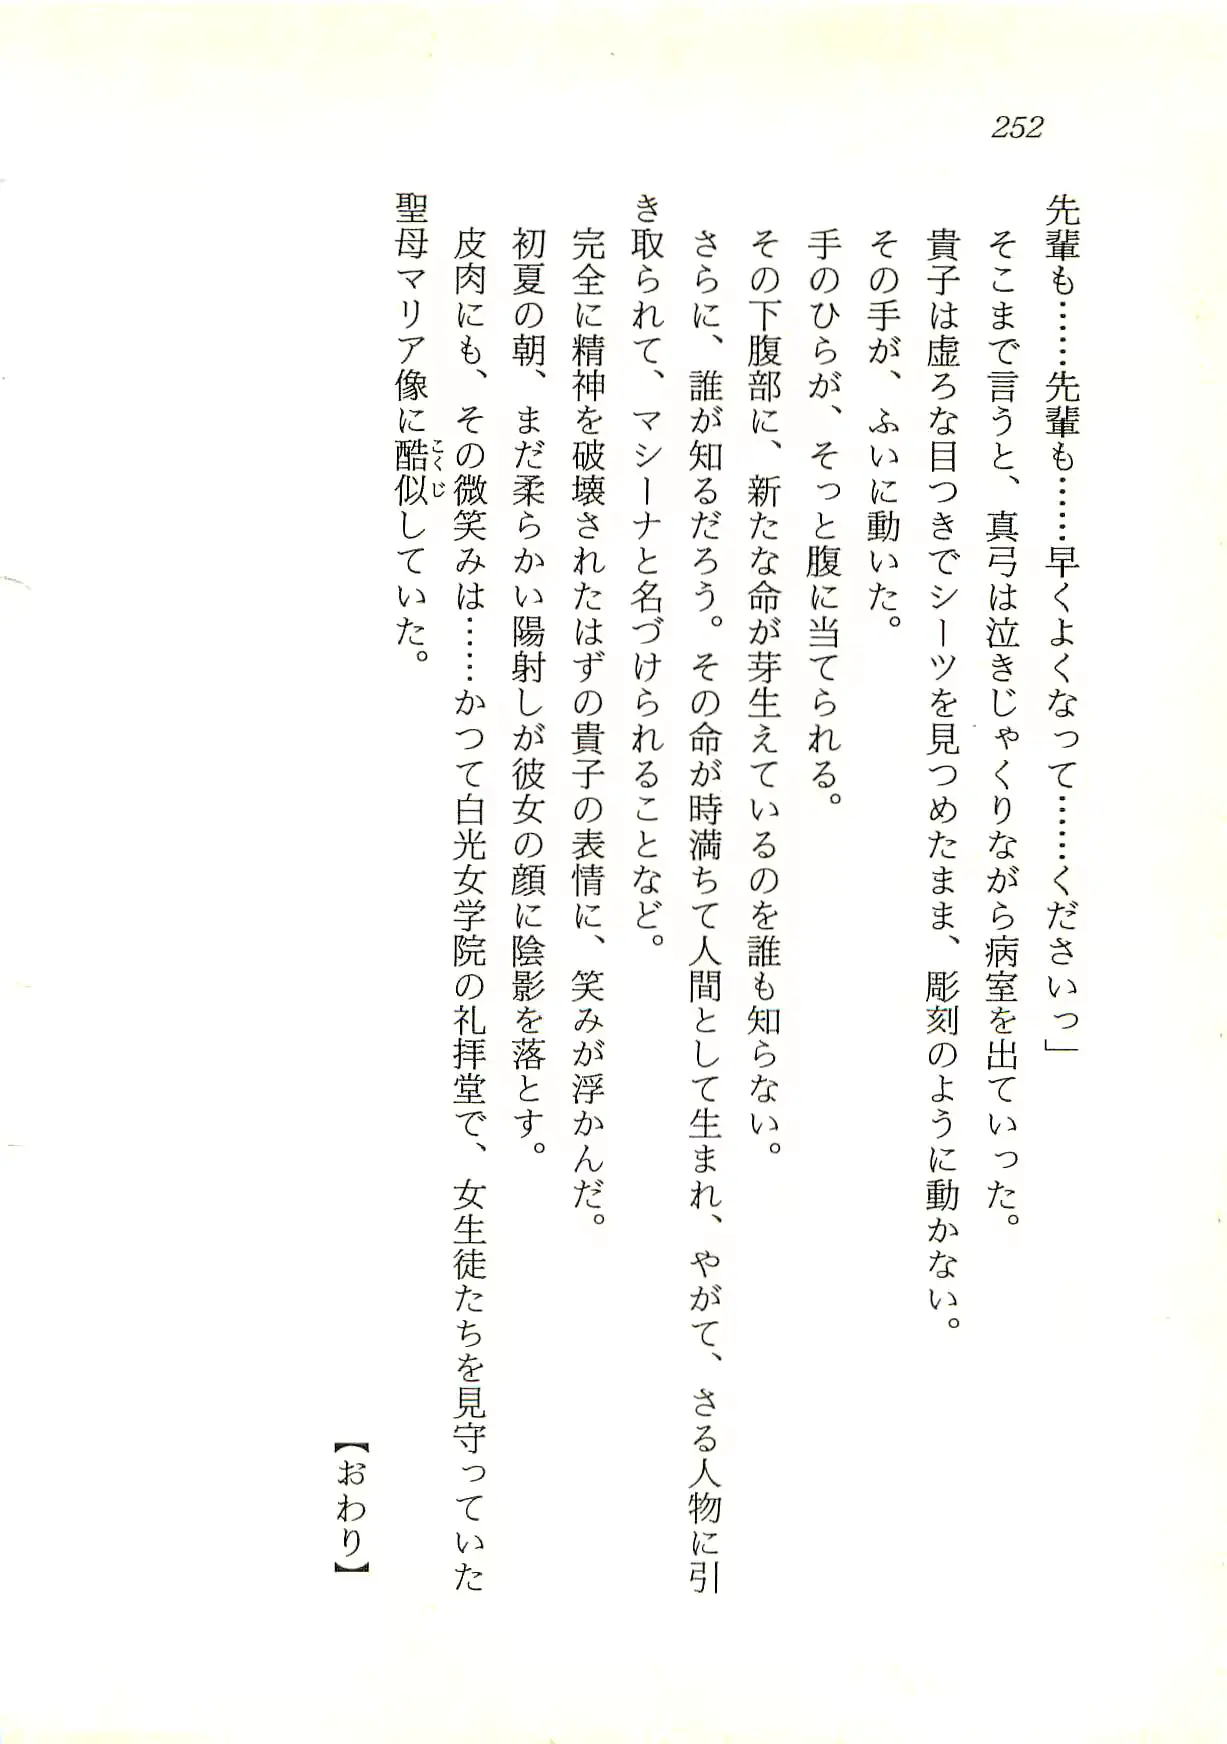 252
先輩も……先輩も……早くよくなって……くださいっ」
そこまで言うと、真弓は泣きじゃくりながら病室を出ていった。
貴子は虚ろな目つきでシーツを見つめたまま、彫刻のように動かない。
その手が、ふいに動いた。
手のひらが、そっと腹に当てられる。
その下腹部に、新たな命が芽生えているのを誰も知らない。
さらに、誰が知るだろう。その命が時満ちて人間として生まれ、やがて、さる人物に引
き取られて、マシーナと名づけられることなど。
完全に精神を破壊されたはずの貴子の表情に、笑みが浮かんだ。
初夏の朝、まだ柔らかい陽射しが彼女の顔に陰影を落とす。
皮肉にも、その微笑みは……かつて白光女学院の礼拝堂で、女生徒たちを見守っていた
聖母マリア像に酷似していた。
こくじ
【おわり】